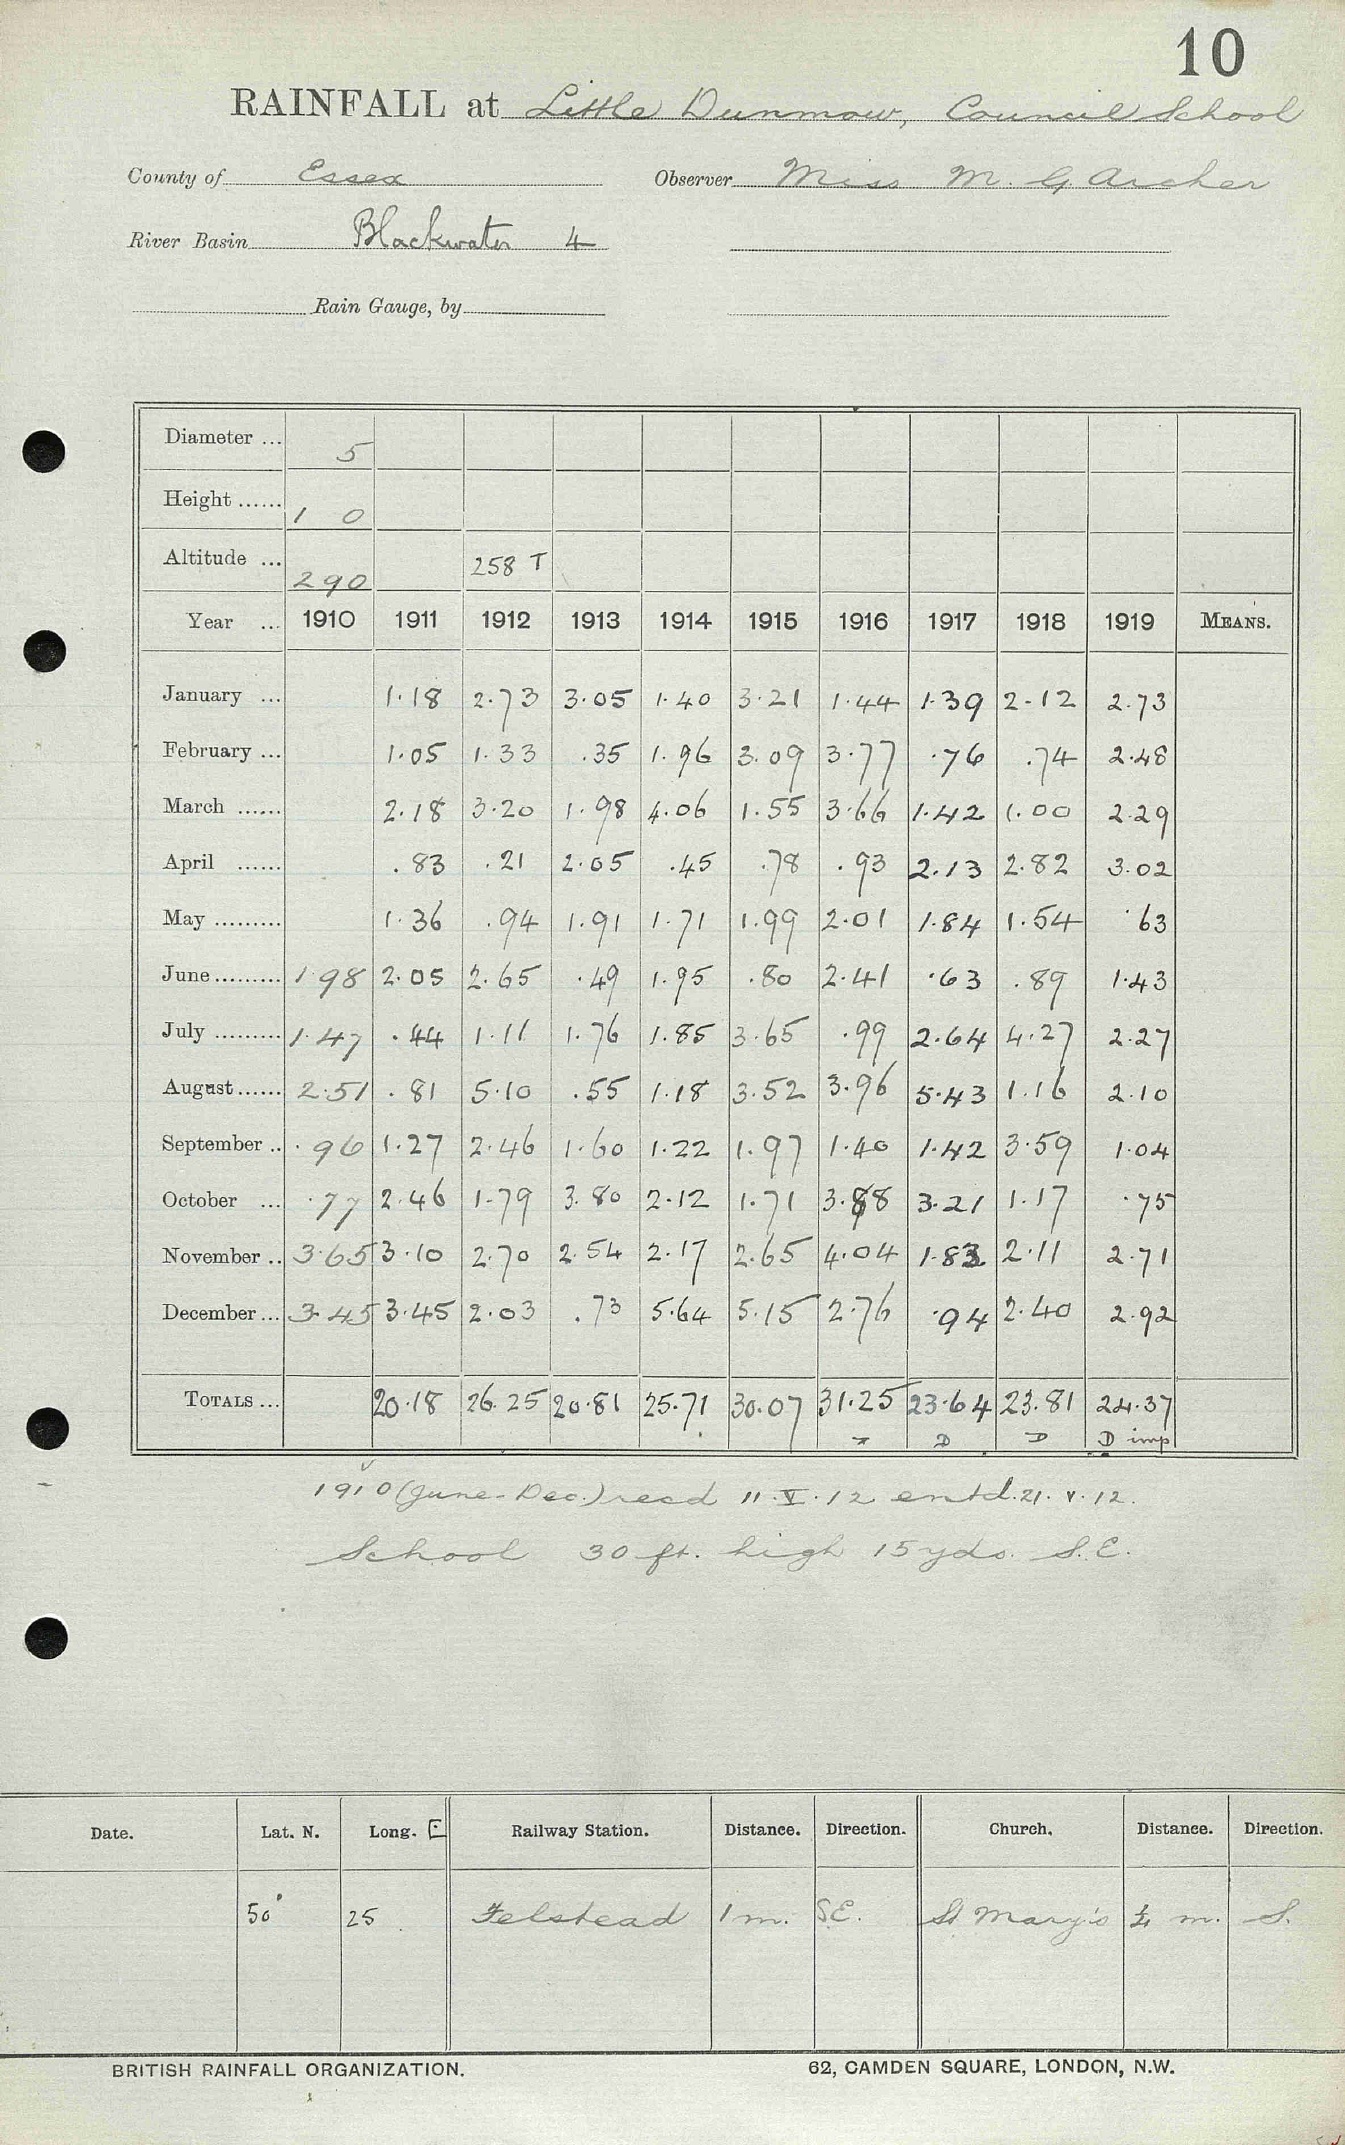 10
RAINFALL at Little Dunmow, Council School
County of Essex Observer Miss M. G. Archer
River Basin Blackwater 4
Rain Gauge, by
Diameter ... 5
Height ...... 1 0
Altitude ... 290 258 T
Year ... 1910 1911 1912 1913 1914 1915 1916 1917 1918 1919 MEANS.
January ... 1.18 2.73 3.05 1.40 3.21 1.44 1.39 2.12 2.73
February ... 1.05 1.33 .35 1.96 3.09 3.77 .76 .74 2.48
March ...... 2.18 3.20 1.98 4.06 1.55 3.66 1.42 1.00 2.29
April ...... .83 .21 2.05 .45 .78 .93 2.13 2.82 3.02
May ......... 1.36 .94 1.91 1.71 1.99 2.01 1.84 1.54 .63
June ......... 1.98 2.05 2.65 .49 1.95 .80 2.41 .63 .89 1.43
July ......... 1.47 .44 1.11 1.76 1.85 3.65 .99 2.64 4.27 2.27
August ...... 2.51 .81 5.10 .55 1.18 3.52 3.96 5.43 1.16 2.10
September .. .96 1.27 2.46 1.60 1.22 1.97 1.40 1.42 3.59 1.04
October ... .77 2.46 1.79 3.80 2.12 1.71 3.88 3.21 1.17 .75
November .. 3.65 3.10 2.70 2.54 2.17 2.65 4.04 1.83 2.11 2.71
December ... 3.45 3.45 2.03 .73 5.64 5.15 2.76 .94 2.40 2.92
TOTALS ... 20.18 26.25 20.81 25.71 30.07 31.25 23.64 23.81 24.37
D D D imp
1910 (June-Dec.) recd 11.V.12 entd. 21.V.12.
School 30 ft. high 15 yds. S.E.
Date. Lat. N. Long. E Railway Station. Distance. Direction. Church. Distance. Direction.
50' 25 Felstead 1 m. SE. St Mary's ¼ m. S.
BRITISH RAINFALL ORGANIZATION. 62, CAMDEN SQUARE, LONDON, N.W.